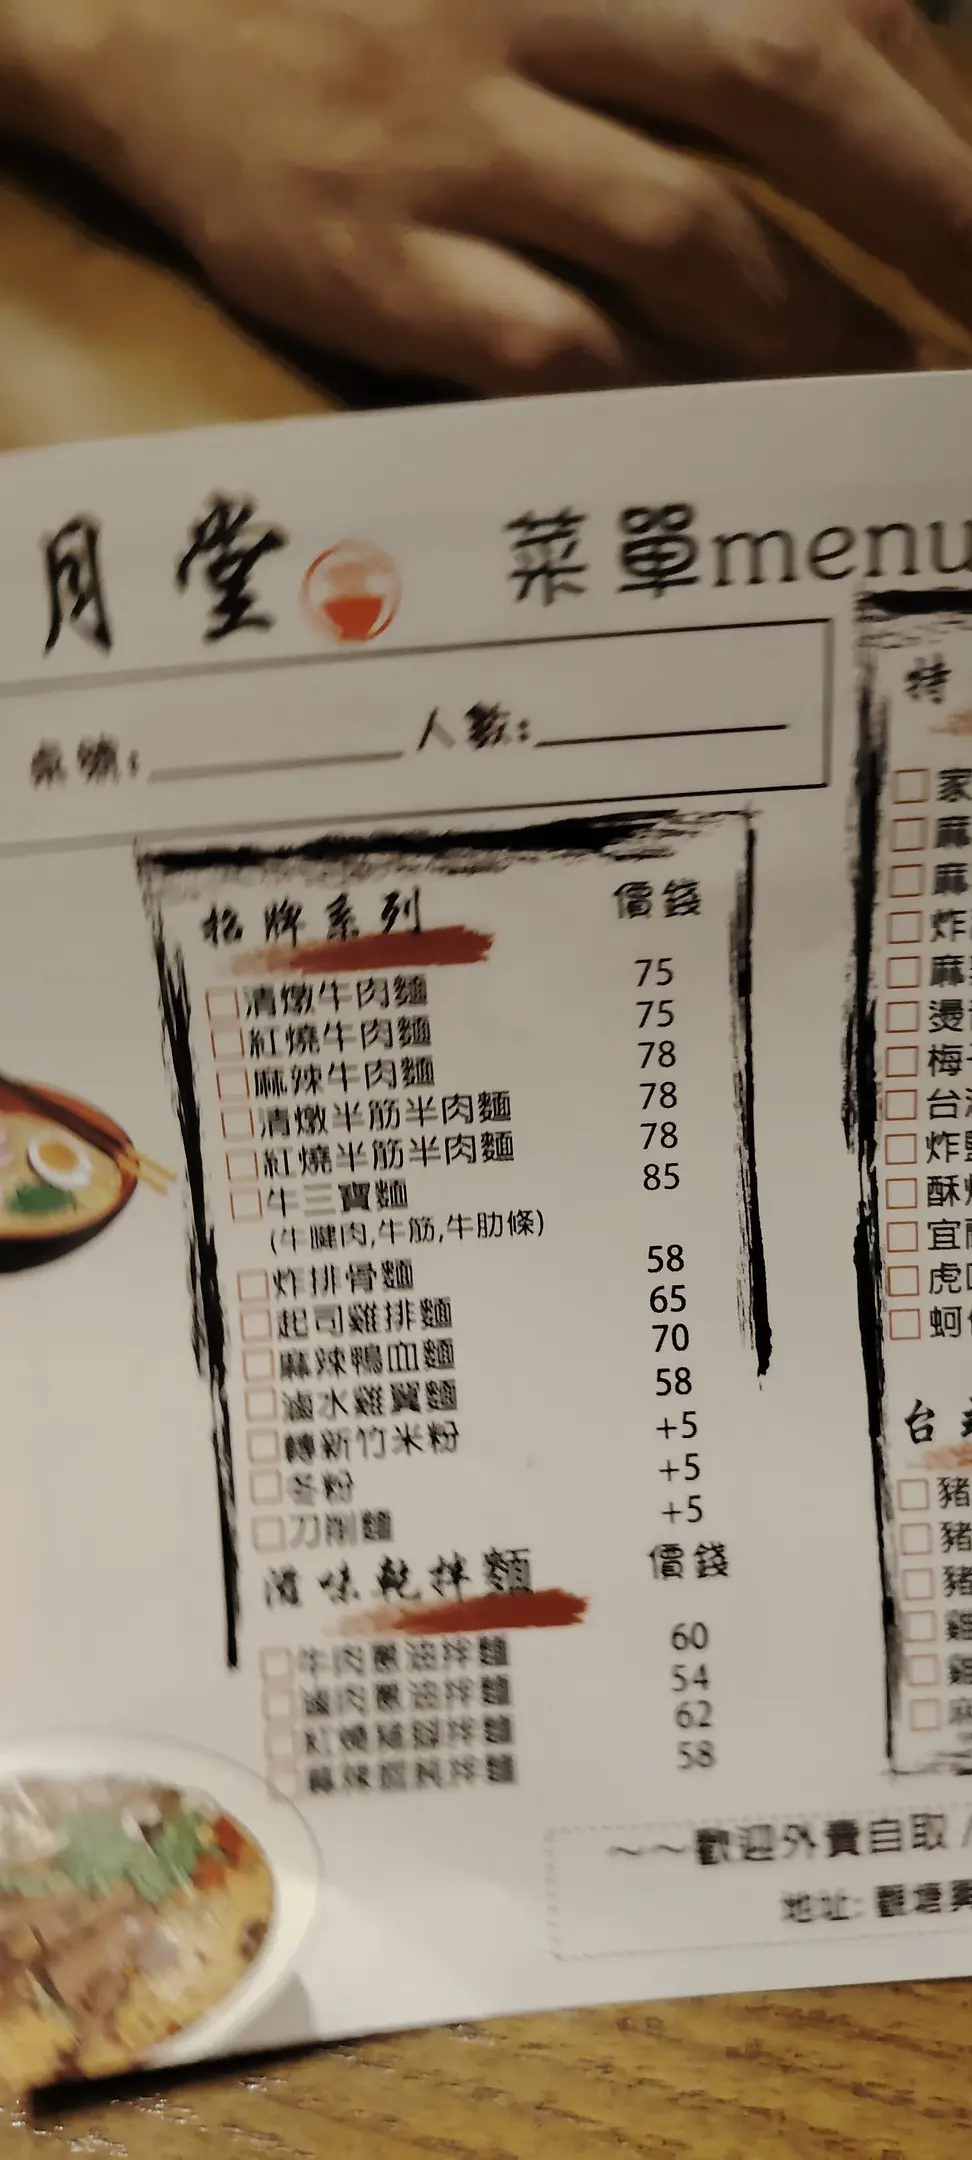 月堂
菜單menu
桌號: 人數:
招牌系列 價錢
清燉牛肉麵 75
紅燒牛肉麵 75
麻辣牛肉麵 78
清燉半筋半肉麵 78
紅燒半筋半肉麵 78
牛三寶麵 85
(牛腱肉,牛筋,牛肋條)
炸排骨麵 58
起司雞排麵 65
麻辣鴨血麵 70
滷水雞翼麵 58
轉新竹米粉 +5
冬粉 +5
刀削麵 +5
滋味乾拌麵 價錢
牛肉蔥油拌麵 60
滷肉蔥油拌麵 54
紅燒豬腳拌麵 62
麻辣餛飩拌麵 58
特
家
麻
麻
炸
麻
燙
梅
台
炸
酥
宜
虎
蚵
台
豬
豬
豬
雞
雞
麻
~~歡迎外賣自取 /
地址: 觀塘